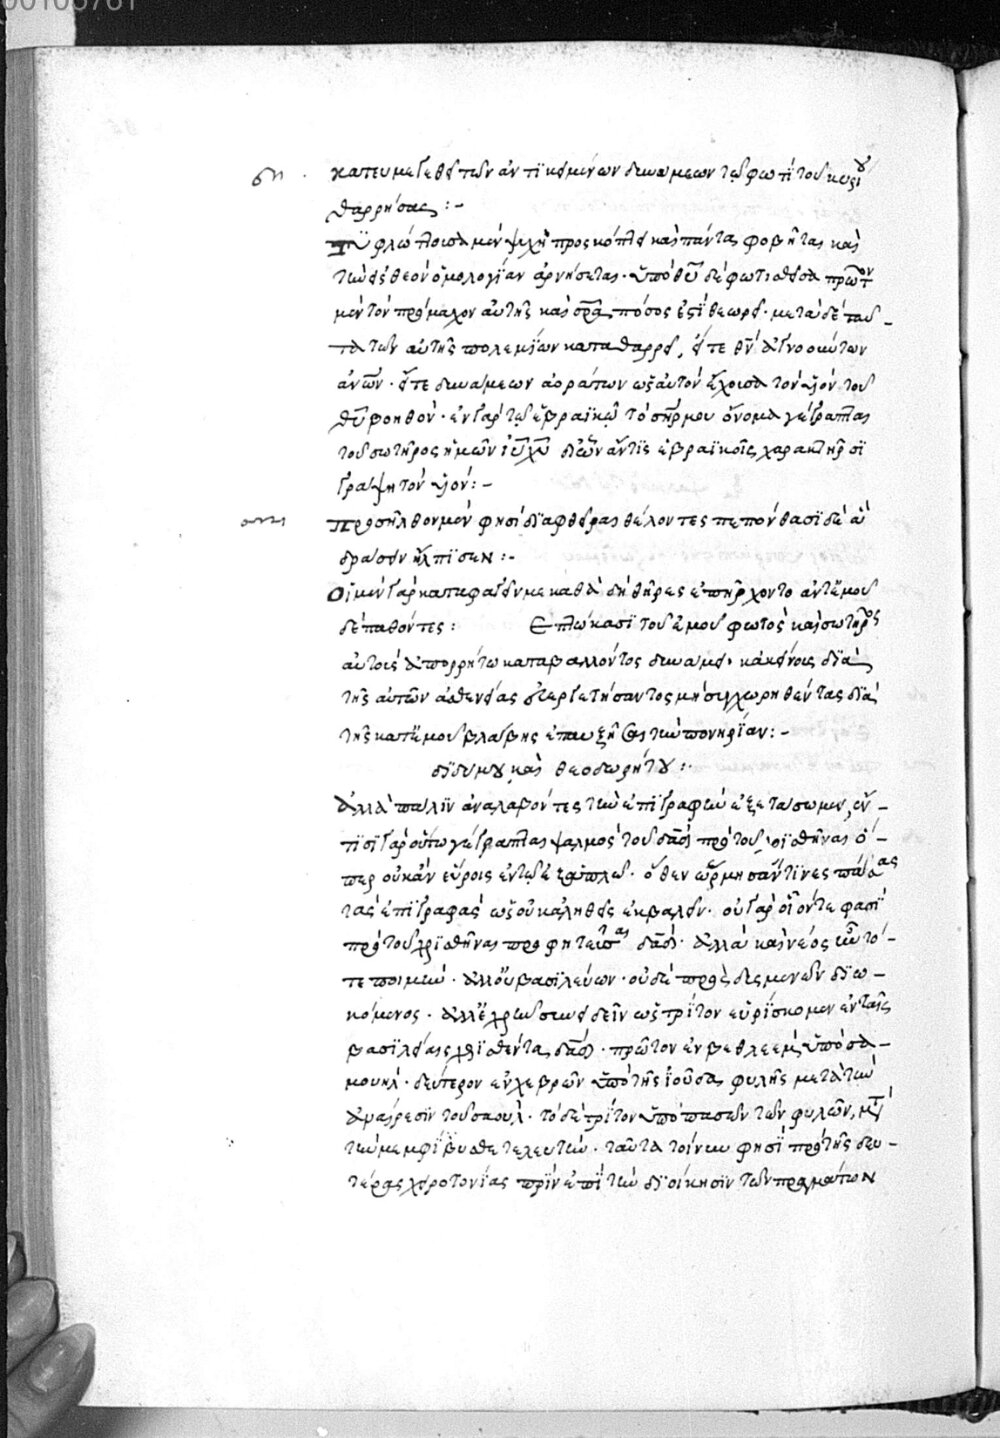 00105761
κατευμεγεθεῖ τῶν ἀντικειμένων δυνάμεων τῷ φωτὶ τοῦ κυρίου
θαρρήσας :-
Τυφλώττουσα μὲν ψυχὴ προσκόπτει καὶ πάντας φοβῆται καὶ
τὴν εἰς θεὸν ὁμολογίαν ἀρνήσεται· ὑπὸ θυ δὲ φωτισθεῖσα πρῶτον
μὲν τὸν πρόμαχον αὐτῆς καὶ σρα πόσος ἐστὶ θεωρεῖ· μετὰ δὲ ταῦ-
τα τῶν αὐτῆς πολεμίων καταθαρρεῖ, εἴτε θν ἀγνοούντων
ανων· εἴτε δυνάμεων ἀοράτων ὡς αὐτὸν ἔχουσα τὸν υἱὸν τοῦ
θυ βοηθόν· ἐν γὰρ τῷ ἑβραϊκῷ τὸ σηρ μου ὄνομα γέγραπται
τοῦ σωτῆρος ἡμῶν ιυ χυ δι' ὧν ἄν τις ἑβραϊκοῖς χαρακτῆρσι
γράψῃ τὸν υἱόν :-
προσῆλθον μὲν φησὶ διαφθεῖραι θέλοντες πεπόνθασι δὲ ἃ
δράσειν ἤλπισαν :-
Οἱ μὲν γὰρ καταφαγεῖν με καθὰ δὴ θῆρες ἐπήρχοντο ἀντ' ἐμοῦ
δὲ παθόντες : Επτώκασι τοῦ ἐμοῦ φωτὸς καὶ σωτῆρος
αὐτοὺς ἀπορρήτω καταβαλλόντος δυνάμει· κἀκείνους διὰ
τῆς αὐτῶν ἀσθενείας εὐεργετήσαντος μὴ συγχωρηθέντας διὰ
τῆς κατ' ἐμοῦ βλάβης ἐπαυξῆσαι τὴν πονηρίαν :-
διδύμου καὶ θεοδωρήτου :-
Ἀλλὰ πάλιν ἀναλαβόντες τὴν ἐπιγραφὴν ἐξετάσωμεν, ἔν-
τισι γὰρ οὕτω γέγραπται ψαλμὸς τοῦ δαδ πρὸ τοῦ χρισθῆναι ὅ-
περ οὐκ ἂν εὕροις ἐν τῷ ἑξαπλῷ· ὅθεν ὥρμησάν τινες πάσας
τὰς ἐπιγραφὰς ὡς οὐκ ἀληθεῖς ἐκβαλεῖν· οὐ γὰρ οἷόν τε φασὶ
πρὸ τοῦ χρισθῆναι προφητεῦσαι δαδ· ἀλλὰ καὶ νέος ὢν τό-
τε ποιμὴν· ἀλλ' οὐ βασιλεύων· οὐδὲ πρὸς δυσμενῶν διω-
κόμενος· ἀλλ' ἐχρῆν συνιδεῖν ὡς τρίτον εὑρίσκομεν ἐν ταῖς
βασιλείαις χρισθέντα δαδ· πρῶτον ἐν βεθλεὲμ ὑπὸ σα-
μουήλ· δεύτερον ἐν χεβρὼν ὑπὸ τῆς ἰούδα φυλῆς μετὰ τὴν
ἀναίρεσιν τοῦ σαούλ· τὸ δὲ τρίτον ὑπὸ πασῶν τῶν φυλῶν, μετὰ
τὴν μεμφιβοσθὲ τελευτήν· ταῦτα τοίνυν φησὶ πρὸ τῆς δευ-
τέρας χειροτονίας πρὶν ἐπὶ τὴν διοίκησιν τῶν πραγμάτων